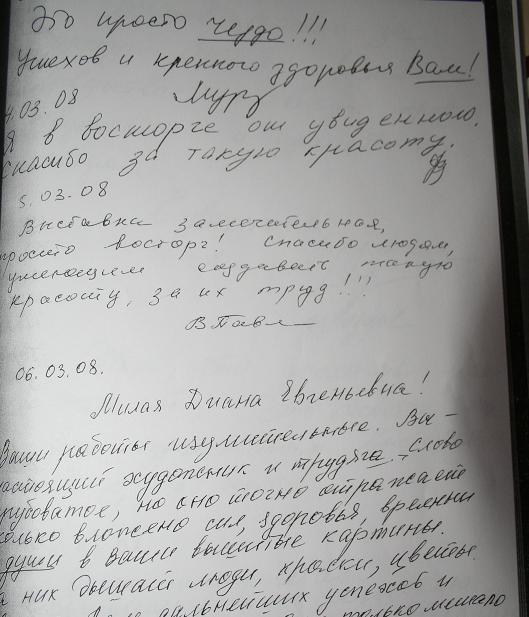 Это просто чудо!!!
Успехов и крепкого здоровья Вам!
4.03.08
Я в восторге от увиденного.
Спасибо за такую красоту.
5.03.08
Выставка замечательная,
просто восторг! Спасибо людям,
умеющим создавать такую
красоту, за их труд!!!
В Павл
06.03.08.
Милая Диана Евгеньевна!
Ваши работы изумительные. Вы -
настоящий художник и трудяга - слово
грубоватое, но оно точно отражает
сколько вложено сил, здоровья, времени
души в Ваши вышитые картины.
них дышат люди, краски, цветы.
дальнейших успехов и
только мешало